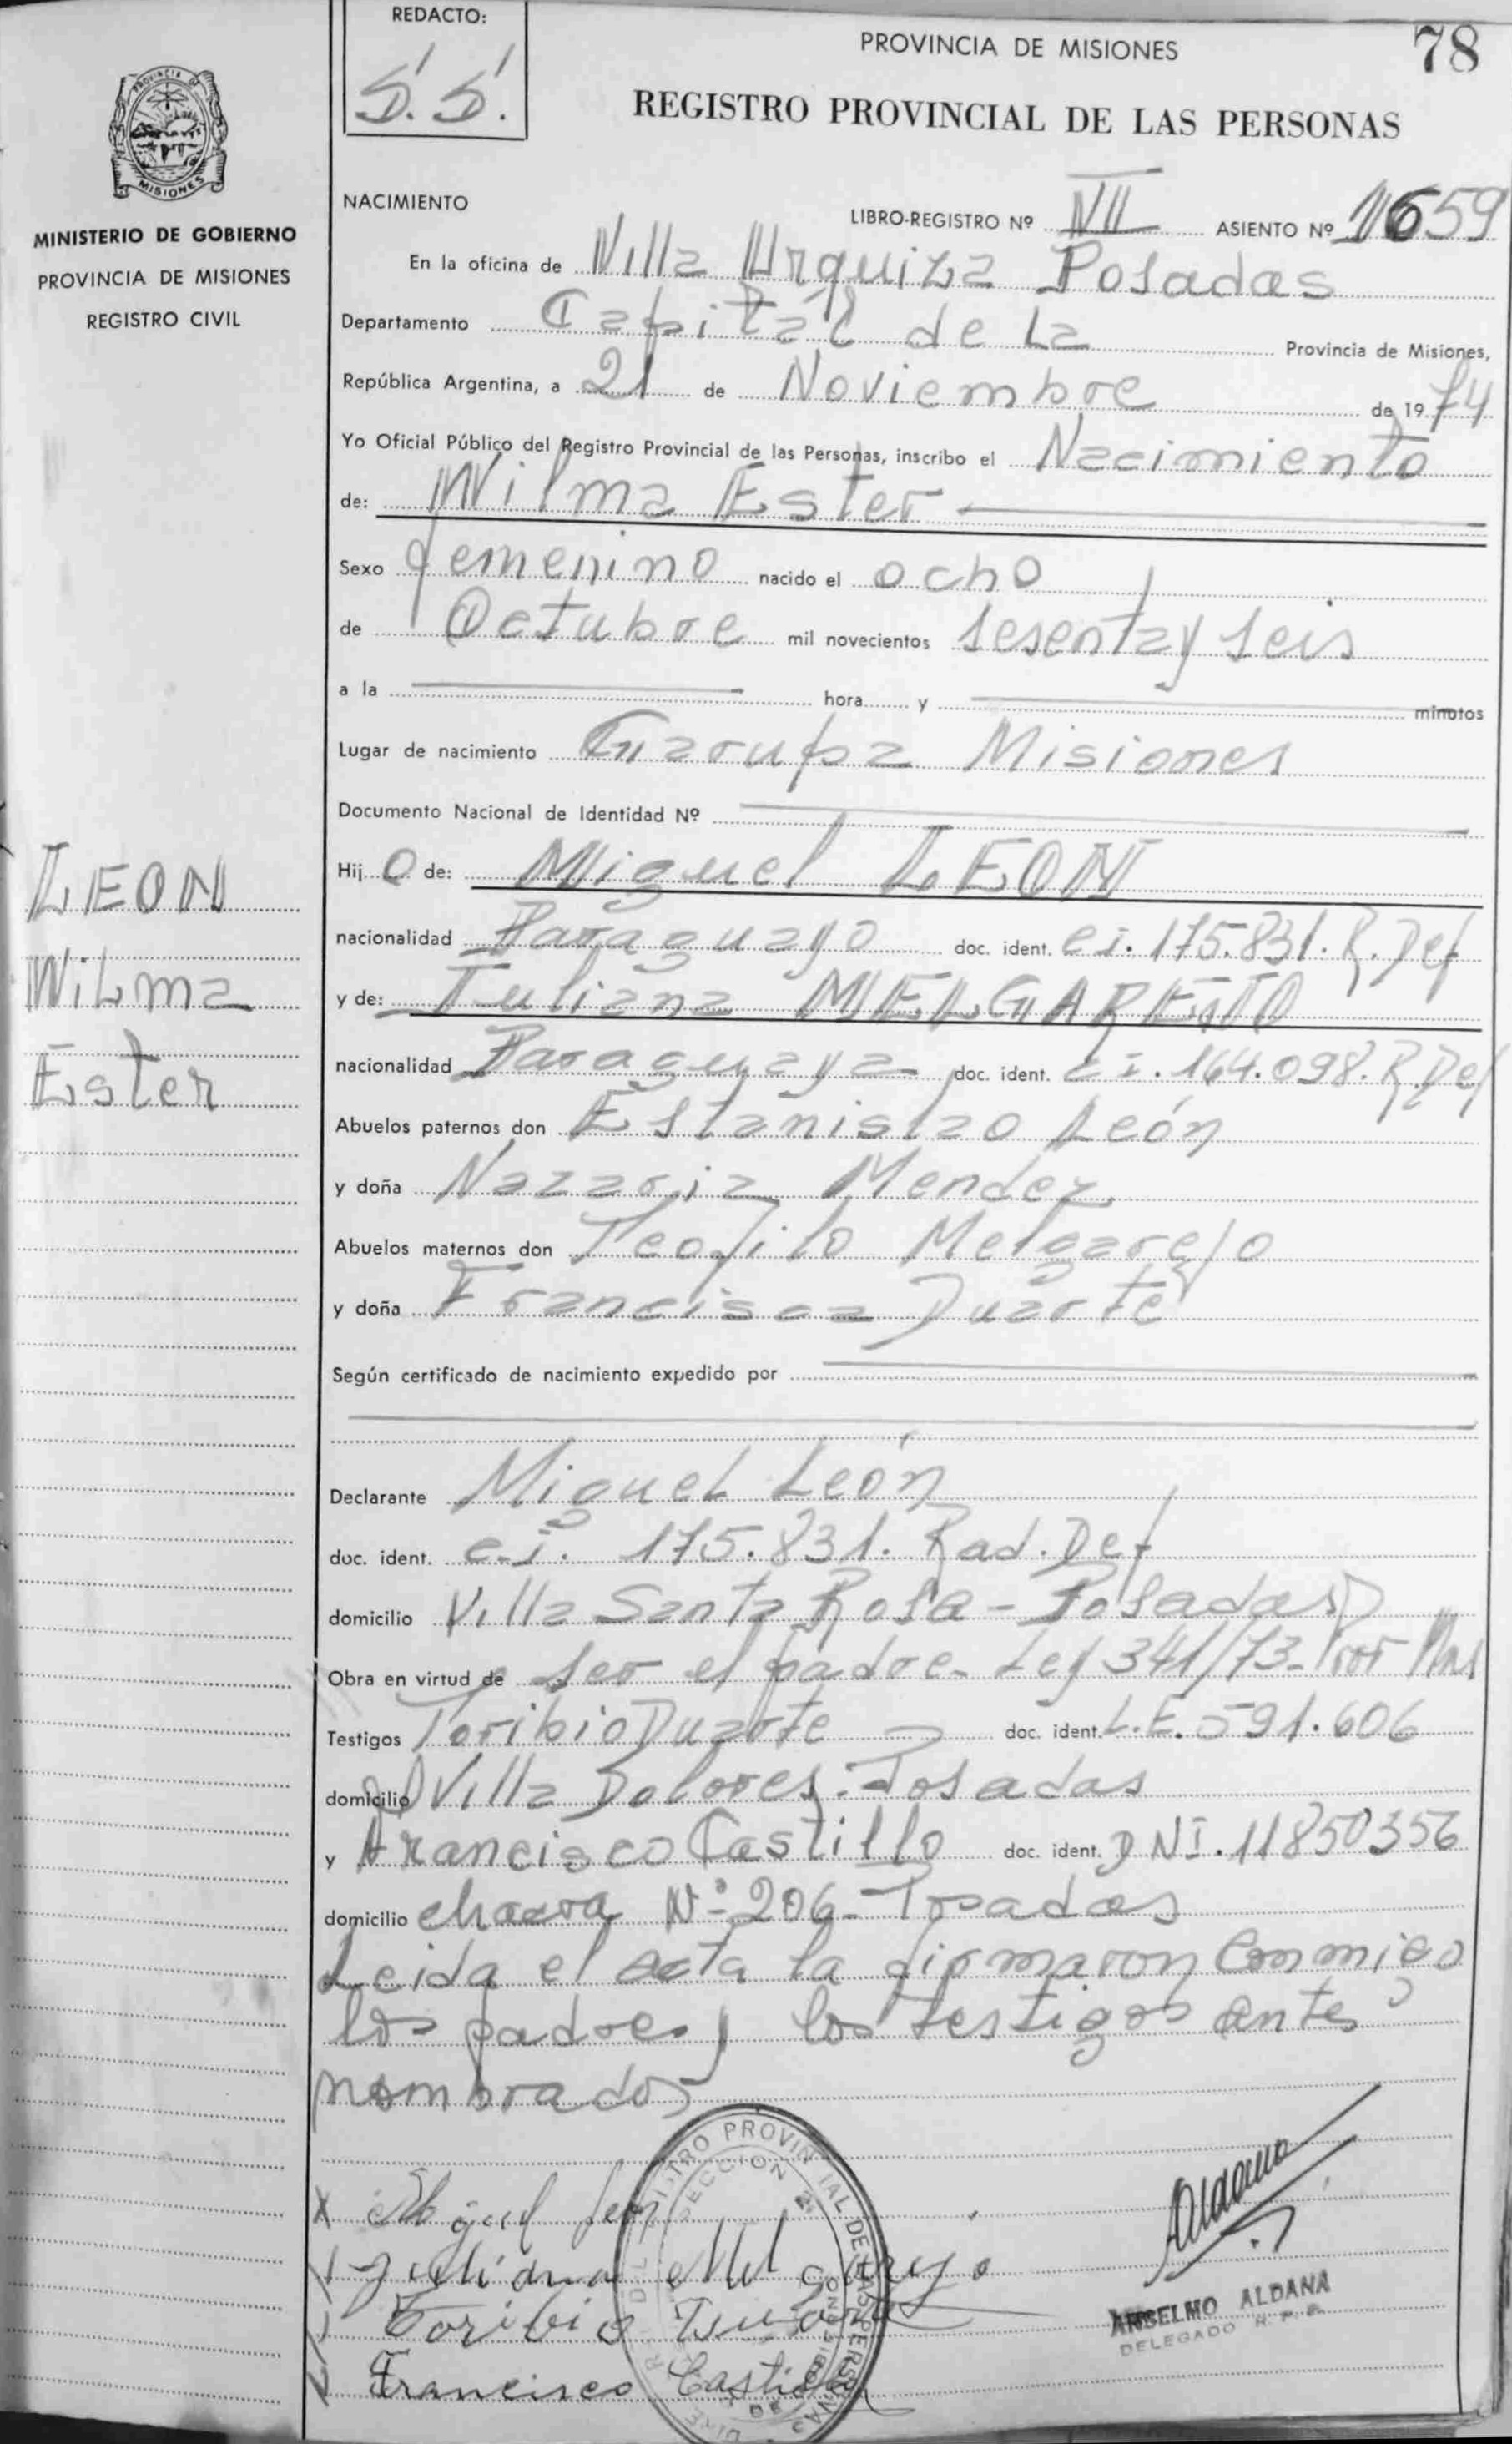 REDACTO:
S. S.
PROVINCIA DE MISIONES
78
REGISTRO PROVINCIAL DE LAS PERSONAS
PROVINCIA DE
MISIONES
MINISTERIO DE GOBIERNO
PROVINCIA DE MISIONES
REGISTRO CIVIL
NACIMIENTO
LIBRO-REGISTRO Nº VII ASIENTO Nº 1659
En la oficina de Villa Urquiza Posadas
Departamento Capital de la Provincia de Misiones,
República Argentina, a 21 de Noviembre de 1974
Yo Oficial Público del Registro Provincial de las Personas, inscribo el Nacimiento
de: Wilma Ester
Sexo femenino nacido el ocho
de Octubre mil novecientos sesenta y seis
a la hora y minutos
Lugar de nacimiento Garupa Misiones
Documento Nacional de Identidad Nº
Hijo de: Miguel LEON
nacionalidad Paraguayo doc. ident. c.i. 175.831. R. Def
y de: Juliana MELGAREJO
nacionalidad Paraguaya doc. ident. c.i. 164.098. R. Def
Abuelos paternos don Estanislao León
y doña Nazaria Mendez
Abuelos maternos don Teofilo Melgarejo
y doña Francisca Duarte
Según certificado de nacimiento expedido por
Declarante Miguel León
doc. ident. c.i. 175.831. Rad. Def
domicilio Villa Santa Rosa - Posadas
Obra en virtud de ser el padre - Ley 341/73 -
Testigos Toribio Duarte doc. ident. L.E. 591.606
domicilio Villa Dolores - Posadas
y Francisco Castillo doc. ident. DNI. 11850356
domicilio chacra Nº 206 - Posadas
Leida el acta la firmaron conmigo
los padres y los testigos antes
nombrados
LEON
Wilma
Ester
X Miguel Leon
Juliana Melgarejo
Toribio Duarte
Francisco Castillo
Aldana
ANSELMO ALDANA
DELEGADO R. P. P.
REGISTRO PROVINCIAL DE LAS PERSONAS
SECCION